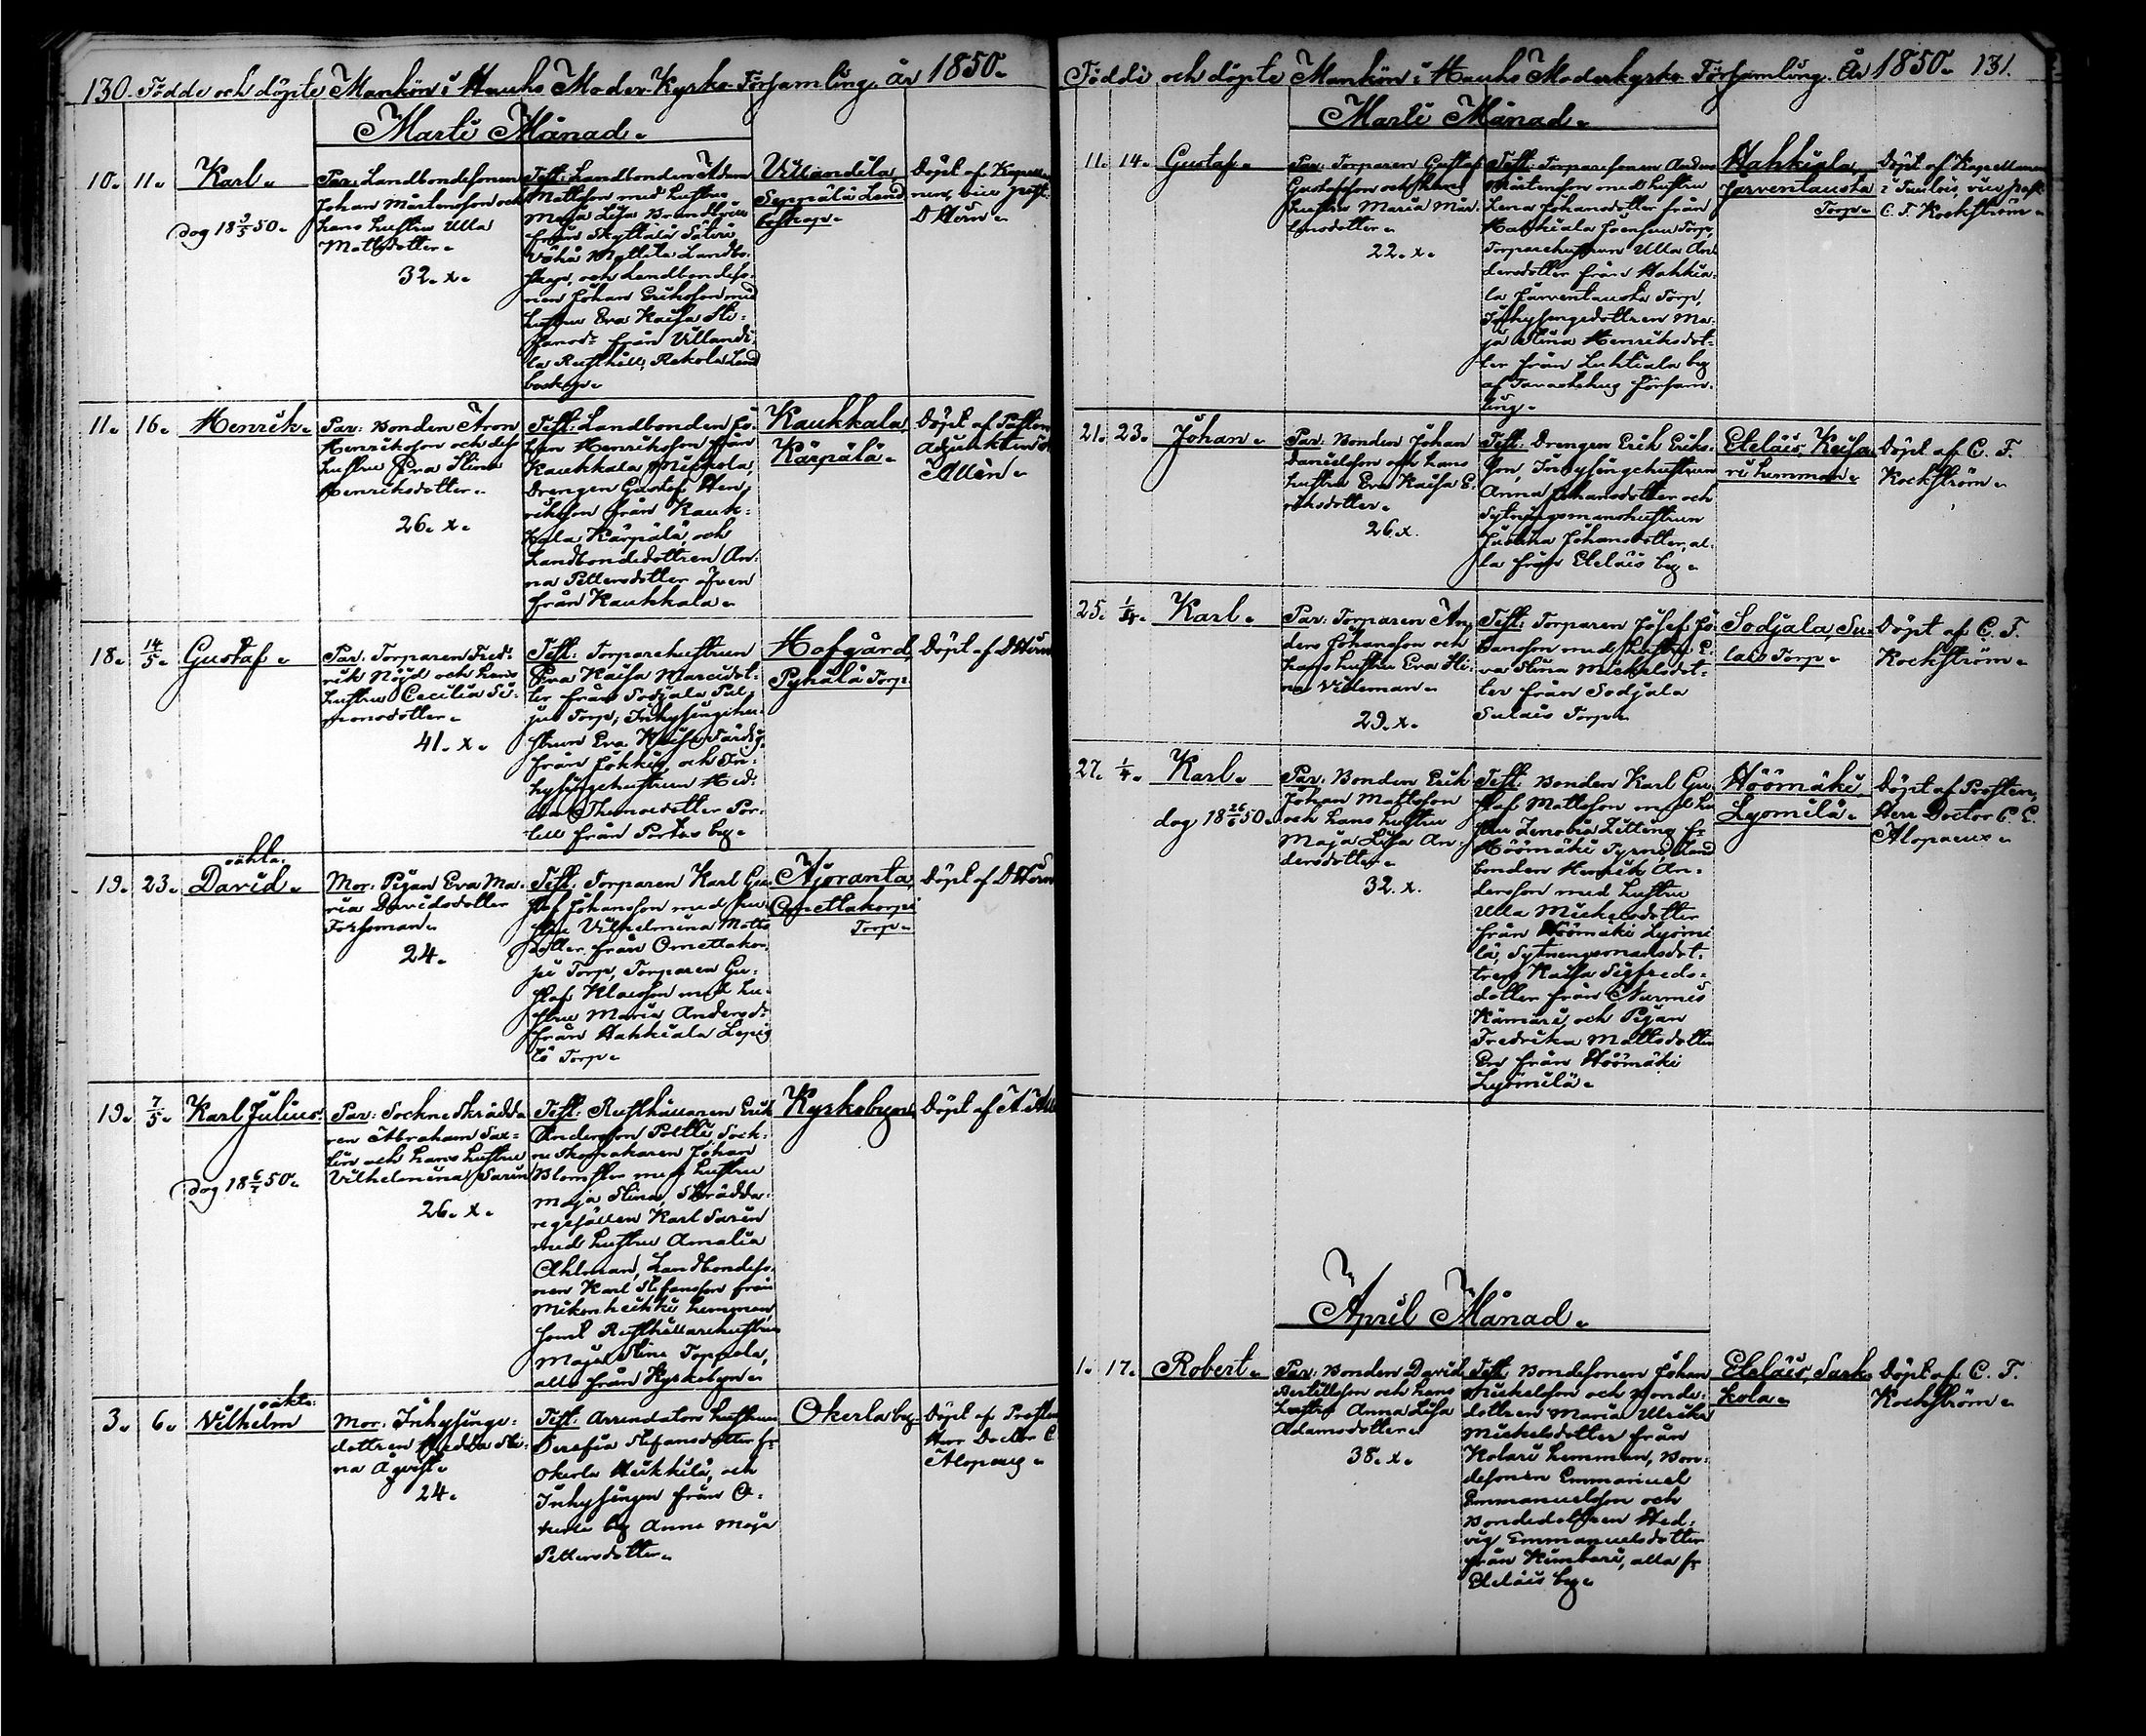 130. Födde och döpte Mankön i Hauho Moder-Kyrko-Församling. År 1850.
Martii Månad.
10. 11. Karl.
dog 18 3/5 50.
Par: Landbondesonen
Johan Mårtensson och
hans hustru Ulla
Mattsdotter.
32. x.
Test: Landbonden Adam
Mattsson med hustru
Maja Lisa
från Skyttälä Säteri
Vähä Mattila Landbo-
skap, och Landbondeso-
nen Johan Eriksson med
hustru Eva Kaisa Ste-
fansd: från Villandi-
la Rusthåll, Rekola Land
boskap.
Villandila
Seppälä Land
boskap.
Döpt af Kapella-
nen, vice past:
11. 16. Henrik.
Par: Bonden Aron
Henriksson och dess
hustru Eva Stina
Henriksdotter.
26. x.
Test: Landbonden Jo-
han Henriksson från
Kaukkala
Drengen Gustaf Hen-
riksson från Kauk-
kala Kärpälä, och
Landbondedottren An-
na Pettersdotter äfven
från Kaukkala.
Kaukkala,
Kärpälä.
Döpt af Pastors
Adjunkten
18. 14/5. Gustaf.
Par: Torparen Fred-
rik Nöjd och hans
hustru Cecilia Si-
monsdotter.
41. x.
Test: Torparehustrun
Eva Kaisa Marcidot-
ter från Sodjala
Torp; Inhysingehu-
strun Eva Kaisa
från och In-
hysingehustrun Hed-
da Thomasdotter Por-
från Portas by.
Hofgård,
Pyhälä Torp.
Döpt af
19. 23. oäkta: David.
Mor: Pigan Eva Ma-
ria Davidsdotter
Forssman.
24.
Test: Torparen Karl Gu-
staf Johansson med hu-
stru Vilhelmina Matts
dotter från Omettakor-
pi Torp, Torparen Gu-
staf Klasson med hu-
stru Maria Andersd:
från Hahkiala
Torp.
Ajoranta,
Omettakorpi
Torp.
Döpt af
19. 7/5. Karl Julius.
dog 18 6/7 50.
Par: Sockne Skrädda
ren Abraham Sax-
lin och hans hustru
Vilhelmina Sarin
26. x.
Test: Rusthållaren Erik
Andersson Poltti, Sock-
ne Skomakaren Johan
Blomster med hustru
Maja Stina, Skrädda-
regesällen Karl Sarén
med hustru Amalia
Ahlman, Landbondeso-
nen Karl Stefansson från
Mikonheikki hemman,
samt Rusthållarehustrun
Maja Stina Toppola,
alla från Kyrkobyn.
Kyrkobyn.
Döpt af
3. 6. oäkta: Vilhelm
Mor: Inhysinge-
dottren Hedda Sti-
na Åqvist.
24.
Test: Arrendators hustrun
Serafia Stefansdotter fr:
Okerla Heikkilä, och
Inhysingen från O-
kerla by Anna Maja
Pettersdotter.
Okerla by.
Döpt af Prosten
Herr Doctor C.
Alopæus.
Födde och döpte Mankön i Hauho Moderkyrko Församling. År 1850. 131.
Martii Månad.
11. 14. Gustaf.
Par: Torparen Gustaf
Gustafsson och hans
hustru Maria Mår-
tensdotter.
22. x.
Test: Torparesonen Anders
Mårtensson med hustru
Lena Johansdotter från
Hahkiala Joensuu Torp,
Torparehustrun Ulla An-
dersdotter från Hahkia-
la Järventausta Torp,
Inhysingedottren Ma-
ja Stina Henriksdot-
ter från Luhtiala by
af Tavastehus Försam-
ling.
Hahkiala,
Järventausta
Torp.
Döpt af Kapellanen
i Tuulois, vice past:
C. F. Rockström.
21. 23. Johan.
Par: Bonden Johan
Danielsson och hans
hustru Eva Kaisa E-
riksdotter.
26. x.
Test: Drengen Erik Eriks-
son, Inhysingehustrun
Anna Johansdotter och
Sytningsmanshustrun
Justina Johansdotter, al-
la från Eteläis by.
Eteläis, Keisa
ri hemman.
Döpt af C. F.
Rockström.
25. 1/4. Karl.
Par: Torparen An-
ders Johansson och
hans hustru Eva Sti-
na Videman.
29. x.
Test: Torparen Josef Jo-
hansson med hustru E-
va Stina Michelsdot-
ter från Sodjala
Sulais Torp.
Sodjala, Su-
lais Torp.
Döpt af C. F.
Rockström.
27. 1/4. Karl.
dog 18 26/6 50.
Par: Bonden Erik
Johan Mattsson
och hans hustru
Maja Lisa An-
dersdotter.
32. x.
Test: Bonden Karl Gu-
staf Mattsson med hu
stru Zenobia Litteng fr:
Höömäki Land
bonden Henrik An-
dersson med hustru
Ulla Michelsdotter
från Höömäki Lyömi
lä, Sytningsmansdot-
tren Kaisa Sigfreds-
dotter från Nurmis
Kämäri, och Pigan
Fredrika Mattsdotter
från Höömäki
Lyömilä.
Höömäki,
Lyömilä.
Döpt af Prosten,
Herr Doctor C. E.
Alopaeus.
April Månad.
1. 17. Robert.
Par: Bonden David
Bertillsson och hans
hustru Anna Lisa
Adamsdotter.
38. x.
Test: Bondesonen Johan
Michelsson och Bonde-
dottren Maria Ulrika
Michelsdotter från
Kolari hemman, Bon-
desonen Emmanuel
Emmanuelsson och
Bondedottren Hed-
vig Emmanuelsdotter
från Kimbari, alla fr:
Eteläis by.
Eteläis, Sark-
kola.
Döpt af C. F.
Rockström.